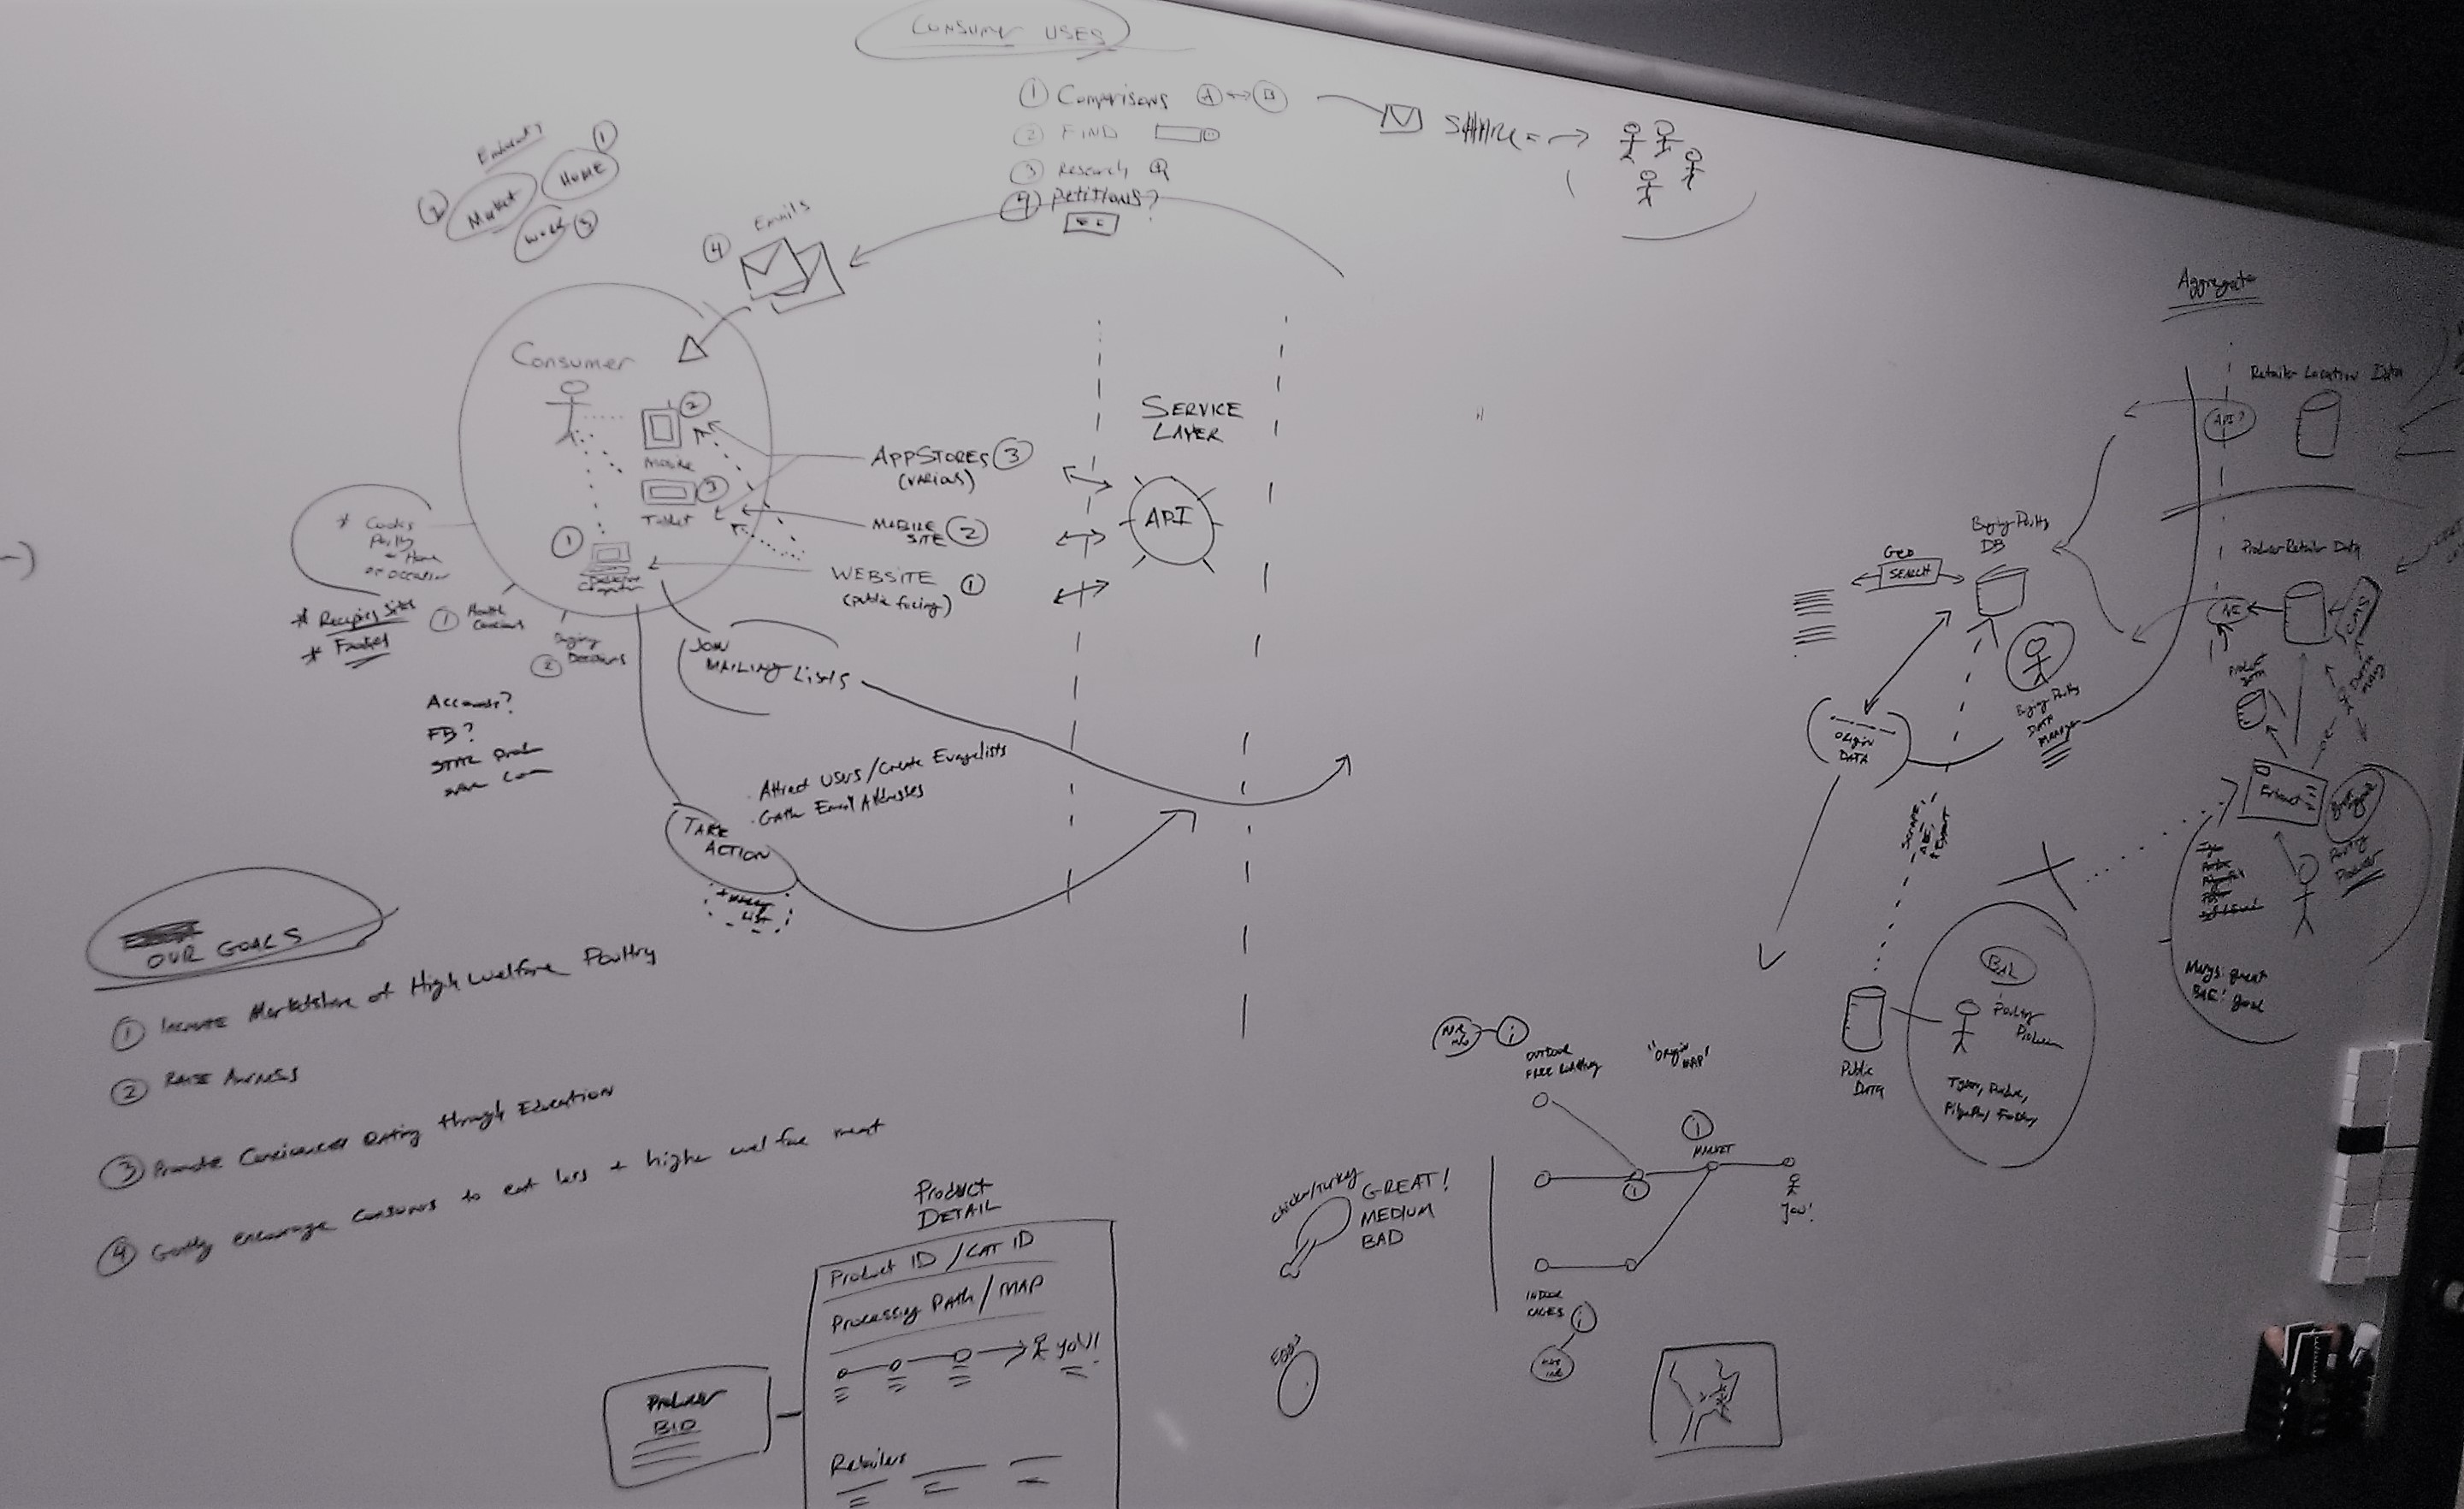 CONSUMER USES
① Comparisons A ↔ B
② FIND
③ Research
④ Petitions?
SHARE
① HOME
② Market
③ Work
④ Emails
Consumer
② Mobile
③ Tablet
① Desktop
Computer
APPSTORES ③
(VARIOUS)
MOBILE
SITE ②
WEBSITE ①
(public facing)
SERVICE
LAYER
API
* Cooks
Poultry
Home
or occasion
* Recipes Sites
①
② Buying
Decisions
Accounts?
FB?
JOIN
MAILING LISTS
. Attract Users / Create Evangelists
. Gather Email Addresses
TAKE
ACTION
LIST
OUR GOALS
① Increase Marketshare of High Welfare Poultry
② RAISE AWARENESS
③ Promote Eating through Education
④ Gently encourage consumers to eat less + higher welfare meat
Product
DETAIL
Product ID / CAT ID
Processing PATH / MAP
YOU!
Retailers
Producer
BIO
Chicken/Turkey
GREAT!
MEDIUM
BAD
EGG?
OUTDOOR
FREE
"ORIGIN
MAP"
①
MARKET
YOU!
INDOOR
CAGES
Aggregate
Retailer Location Data
API?
Producer Retailer Data
Buying Poultry
DB
Geo
SEARCH
Buying Poultry
DATA
MANAGER
ORIGIN
DATA
Product
DATA
Poultry
Producer
Marys: great
BAE: good
Public
DATA
Poultry
Producer